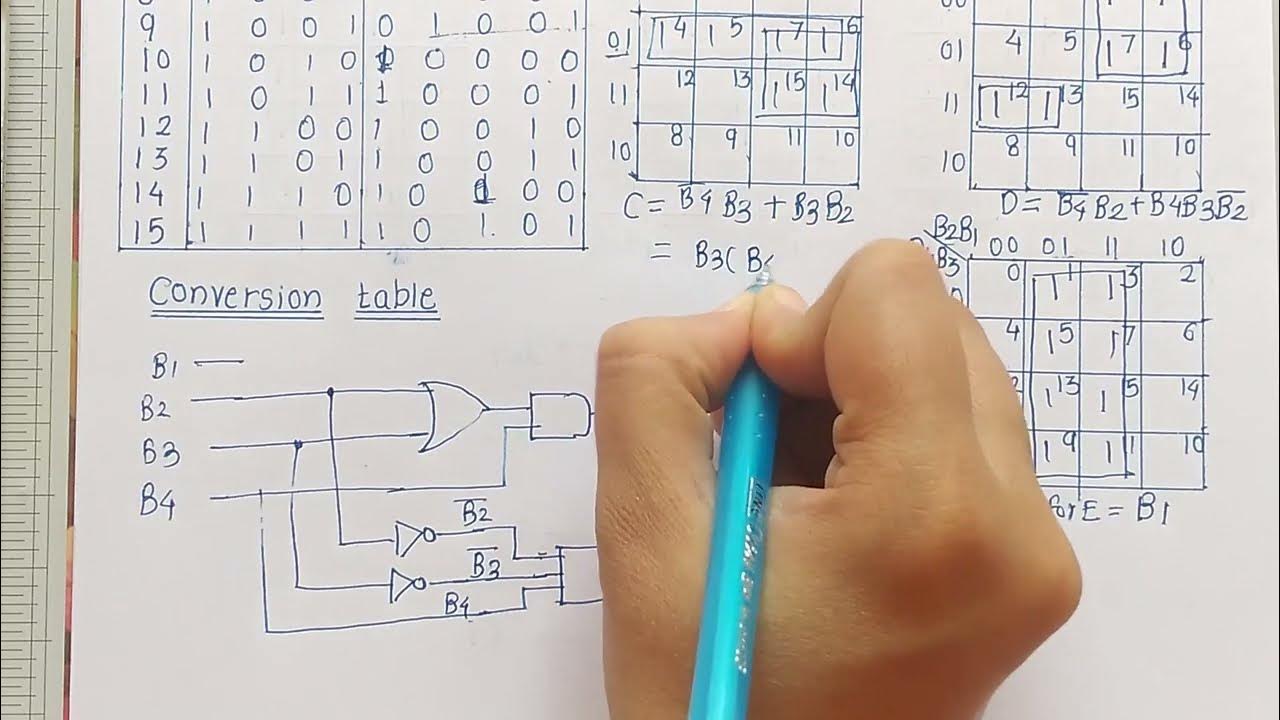 9 1 0 0 1 0 1 0 0 1
10 1 0 1 0 1 0 0 0 0
11 1 0 1 1 1 0 0 0 1
12 1 1 0 0 1 0 0 1 0
13 1 1 0 1 1 0 0 1 1
14 1 1 1 0 1 0 1 0 0
15 1 1 1 1 1 0 1 0 1
Conversion table
B1
B2
B3
B4
B̅2̅
B̅3̅
B4
01 1 4 1 5 1 7 1 6
11 12 13 1 15 1 14
10 8 9 11 10
C = B̅4̅ B3 + B3 B2
= B3(B
01 4 5 1 7 1 6
11 1 12 1 13 15 14
10 8 9 11 10
D = B̅4̅ B2 + B4 B3 B̅2̅
B2B1
B3
00 01 11 10
0 1 1 1 3 2
4 1 5 1 7 6
2 1 13 1 5 14
1 9 1 1 10
for E = B1